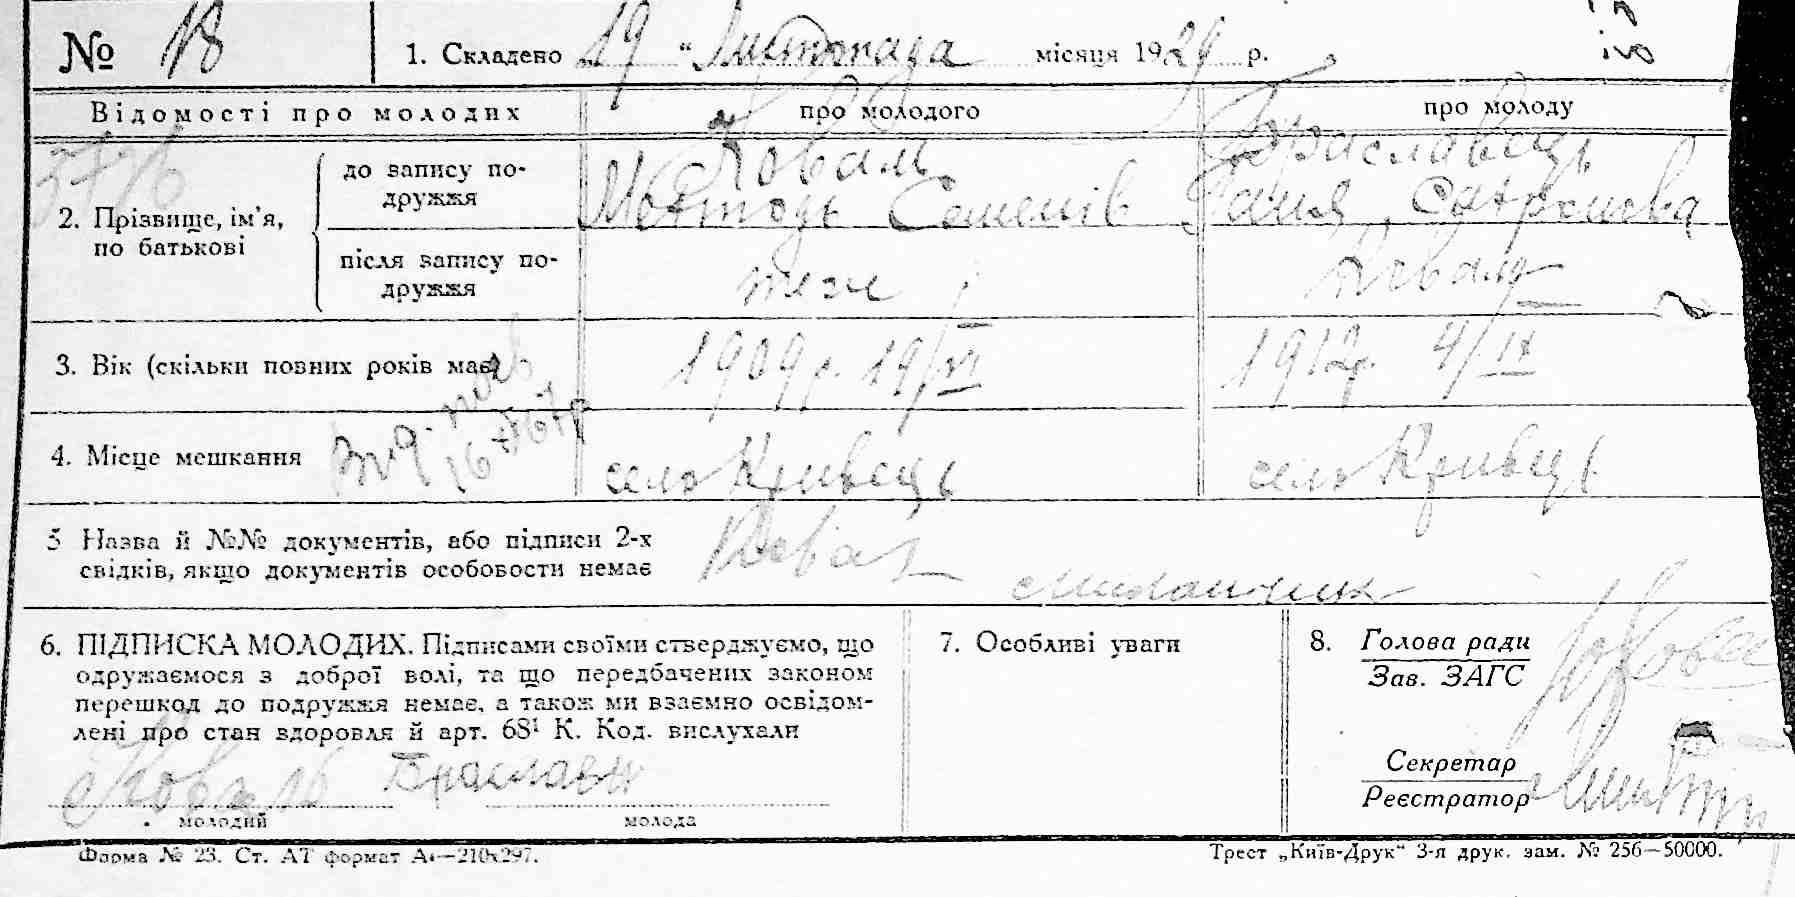 № 18 1. Складено „19 “ Листопада місяця 1929 р.
Відомості про молодих про молодого про молоду
2. Прізвище, ім'я, по батькові
до запису подружжя
Коваль
Методь Семенів
Браславець
Ганя, Сафронова
після запису подружжя
теж
Коваль
3. Вік (скільки повних років має) 1909 р. 19/VI 1912р. 4/IX
4. Місце мешкання село Кривець село Кривець
5 Назва й №№ документів, або підписи 2-х
свідків, якщо документів особовости немає
Коваль
6. ПІДПИСКА МОЛОДИХ. Підписами своїми стверджуємо, що
одружаємося з доброї волі, та що передбачених законом
перешкод до подружжя немає, а також ми взаємно освідом-
лені про стан здоровля й арт. 68¹ К. Код. вислухали
Коваль Браславець
молодий молода
7. Особливі уваги
8. Голова ради
Зав. ЗАГС
Секретар
Реєстратор
Форма № 23. Ст. АТ формат А₄—210х297.
Трест „Київ-Друк“ 3-я друк. зам. № 256—50000.